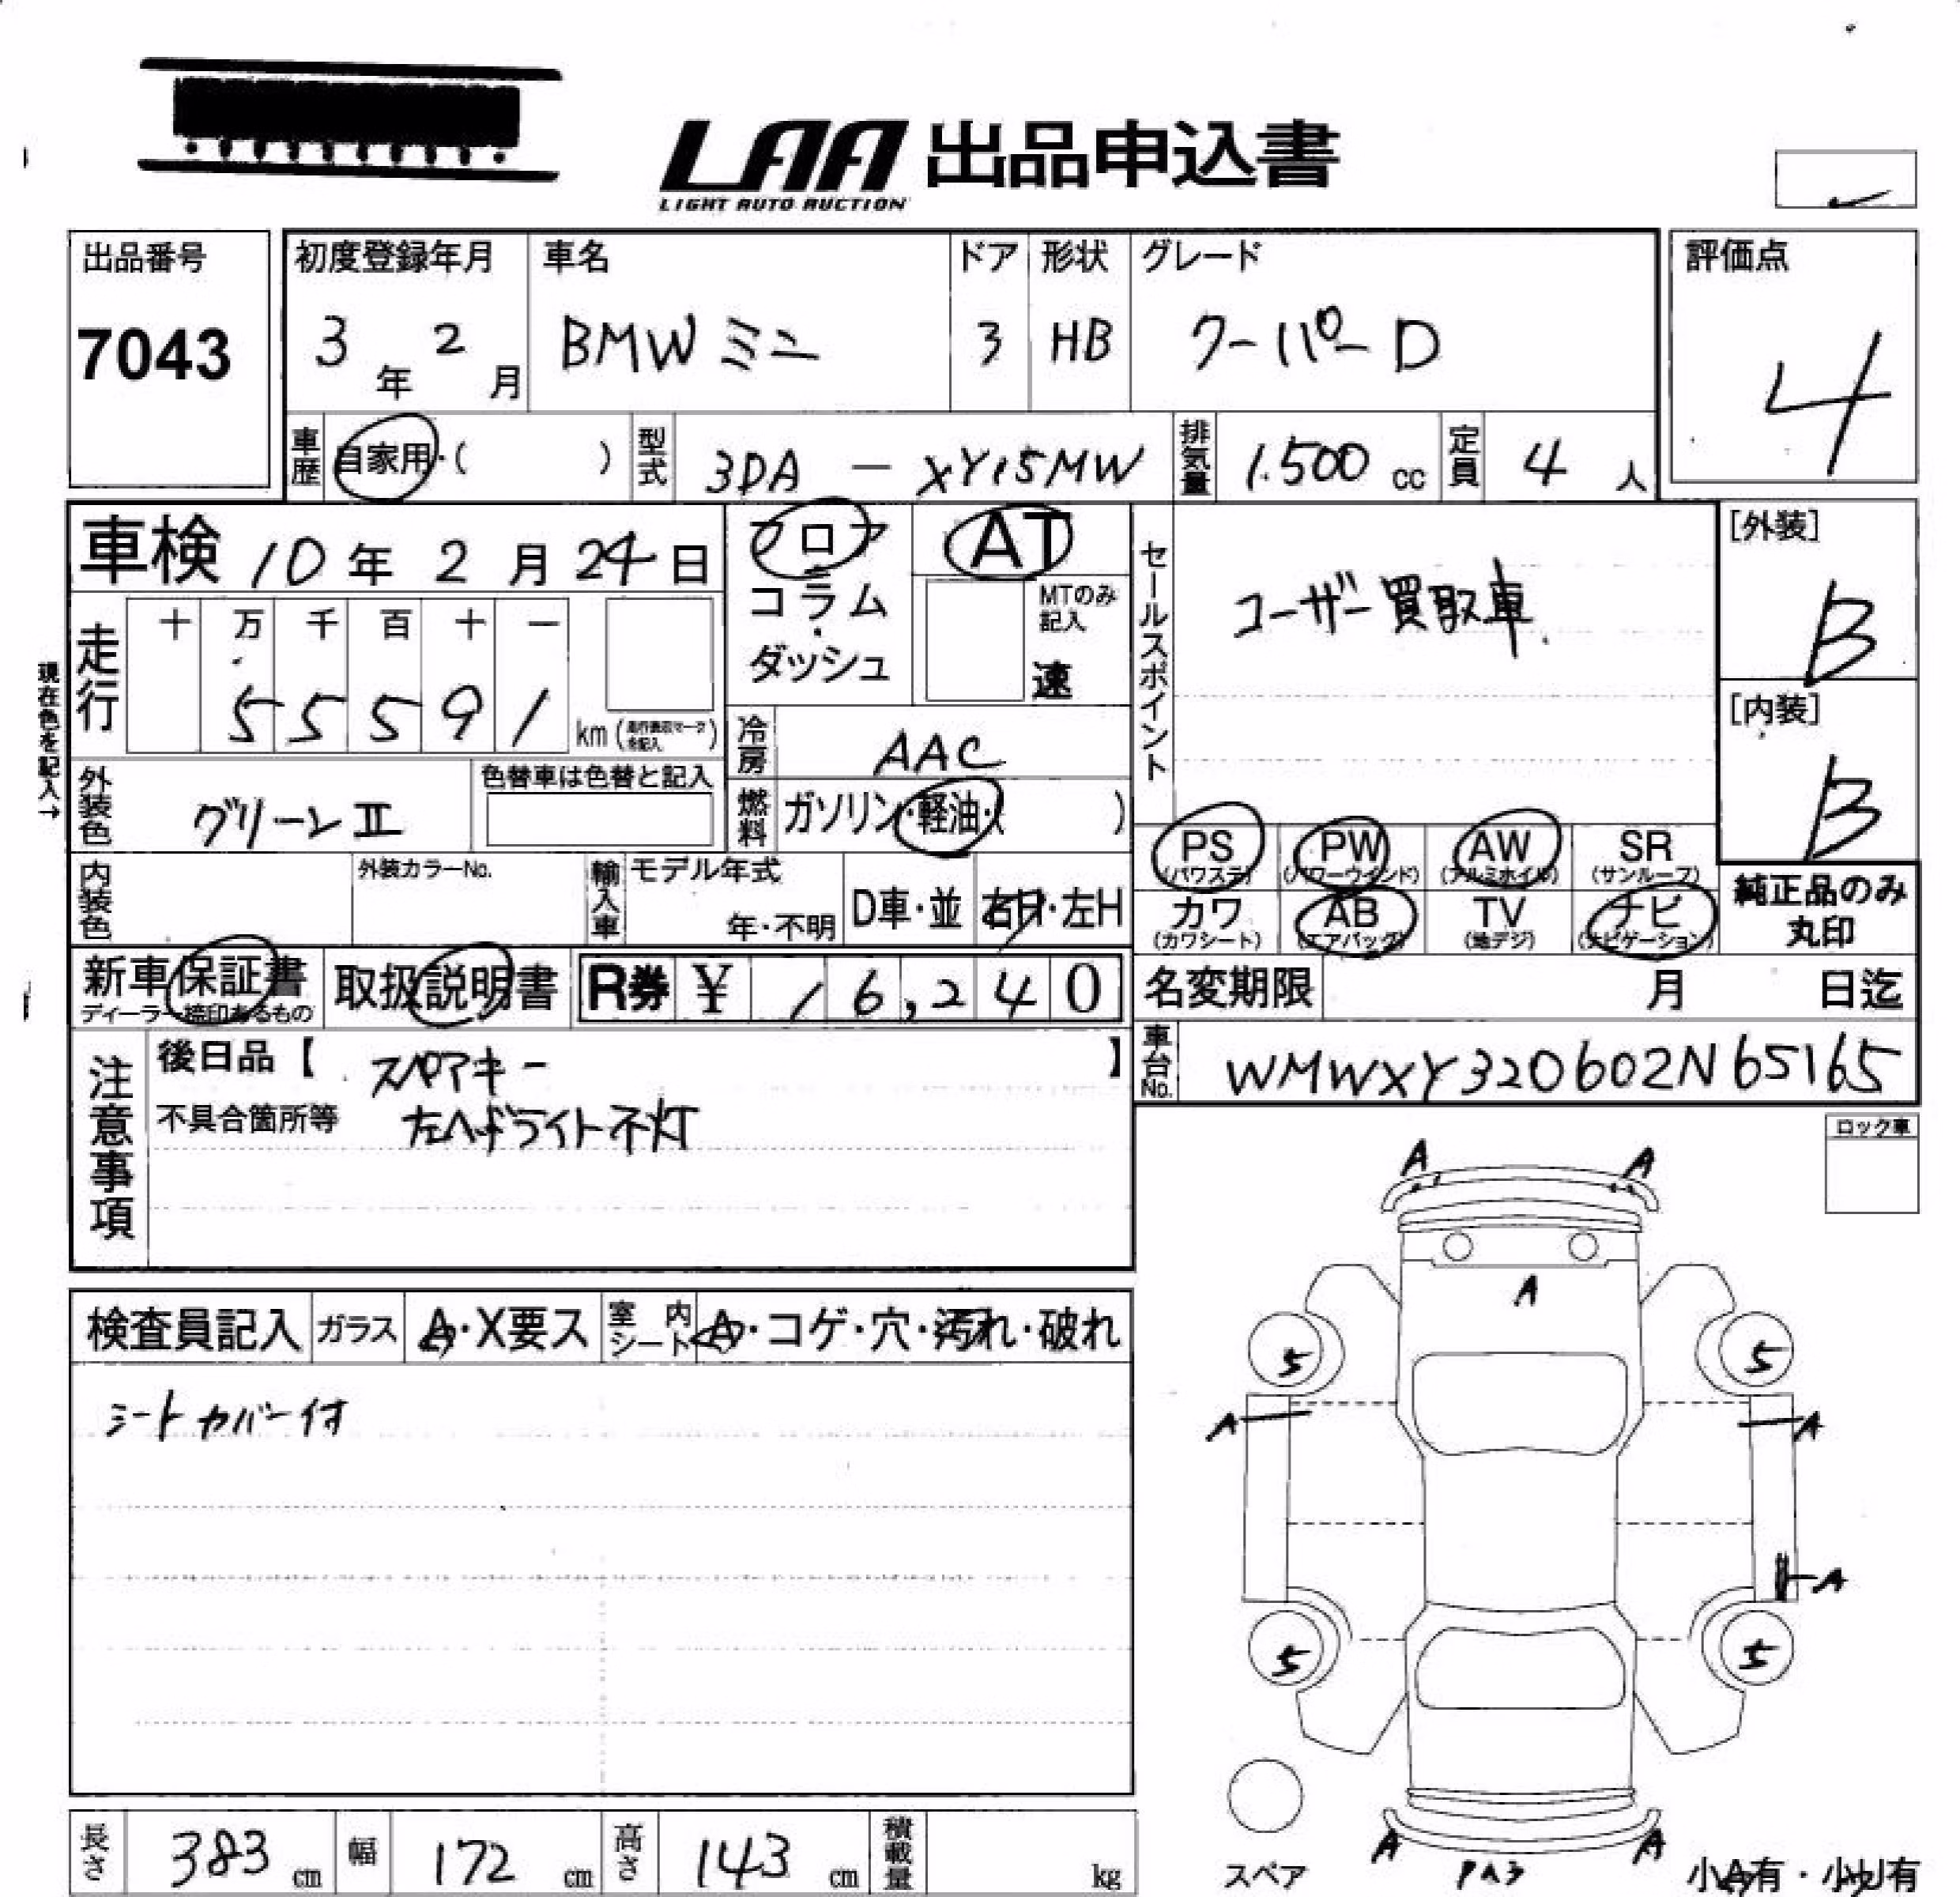 LAA 出品申込書
LIGHT AUTO AUCTION
出品番号
7043
初度登録年月
3年 2月
車名
BMW ミニ
ドア
3
形状
HB
グレード
クーパー D
評価点
4
車歴 自家用・( )
型式 3DA － XY15MW
排気量 1.500 cc
定員 4 人
車検 10年 2月 24日
フロア
コラム
・
ダッシュ
AT
MTのみ
記入
速
セールスポイント
ユーザー買取車
[外装]
B
[内装]
B
現在色を記入→
走行
十 万 千 百 十 一
5 5 5 9 1 km
冷房 AAC
外装色 グリーンⅡ
色替車は色替と記入
燃料 ガソリン・軽油・( )
PS (パワステ)
PW (パワーウインド)
AW (アルミホイル)
SR (サンルーフ)
カワ (カワシート)
AB (エアバッグ)
TV (地デジ)
ナビ (ナビゲーション)
純正品のみ
丸印
内装色
外装カラーNo.
輸入車
モデル年式
年・不明
D車・並
右H・左H
新車保証書
ディーラー捺印あるもの
取扱説明書
R券 ¥ 16,240
名変期限 月 日迄
車台No. WMWXY320602N65165
注意事項
後日品【 スペアキー 】
不具合箇所等 左ヘッドライト不灯
ロック車
検査員記入
ガラス A・X要ス
室内シート A・コゲ・穴・汚れ・破れ
シートカバー付
A A
A
5 5
A A
A
5 5
A A
スペア
PA3
小A有・小U有
長さ 383 cm
幅 172 cm
高さ 143 cm
積載量 kg